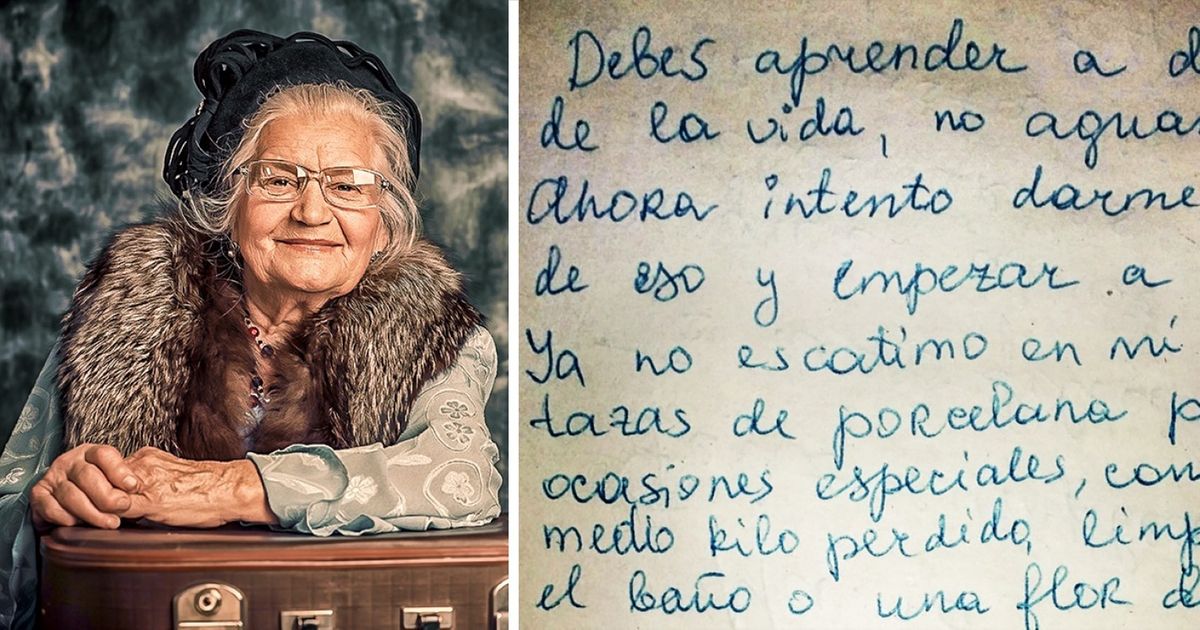 Debes aprender a d
de la vida, no agua
Ahora intento darme
de eso y empezar a
Ya no escatimo en mi
tazas de porcelana p
ocasiones especiales, con
medio kilo perdido, limp
el baño o una flor d